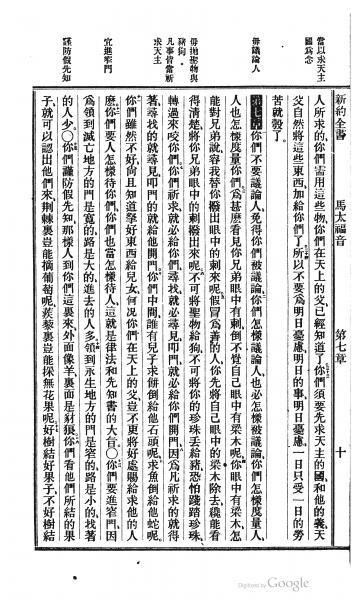 新約全書　馬太福音　第七章　十
當以求天主國爲念
毋議論人
毋拋聖物與豬狗
凡事皆當祈求天主
宜進窄門
謹防假先知
人所求的、你們需用這些物、你們在天上的父、已經知道了、你們須要先求天主的國、和他的義、天
父自然將這些東西加給你們了、所以不要爲明日憂慮、明日的事、明日憂慮、一日只受一日的勞
苦就彀了。
第七章你們不要議論人、免得你們被議論、你們怎樣議論人、也必怎樣被議論、你們怎樣度量人、
人也怎樣度量你們、爲甚麽看見你兄弟眼中有刺、倒不覺自己眼中有梁木呢、你眼中有梁木、怎
能對兄弟說、容我替你撥出眼中的刺來呢、假冒爲善的人、你先將自己眼中的梁木除去、纔能看
得清楚、將你兄弟眼中的刺撥出來呢、不可將聖物給狗、不可將你的珍珠丟給豬、恐怕踐踏珍珠、
轉過來咬你們、你們祈求、就必給你們、尋找、就必尋見、叩門、就必給你們開門、因爲凡祈求的就得
著、尋找的就尋見、叩門的就給他開門、你們中間、誰有兒子求餅、倒給他石頭呢、求魚、倒給他蛇呢、
你們雖然不好、尚且知道拏好東西給兒女、何況你們在天上的父、豈不更將好處賜給求他的人
麽、你們要人怎樣待你們、你們也當怎樣待人、這就是律法和先知書的大旨〇你們要進窄門、因
爲領到滅亡地方的門是寬的、路是大的、進去的人多、領到永生地方的門是窄的、路是小的、找著
的人少〇你們謹防假先知、那樣人到你們這裏來、外面像羊、裏面是豺狼、你們看他們所結的果
子、就可以認出他們來、荊棘裏豈能摘葡萄呢、蒺藜裏豈能採無花果呢、好樹結好果子、不好樹結
Digitized by Google